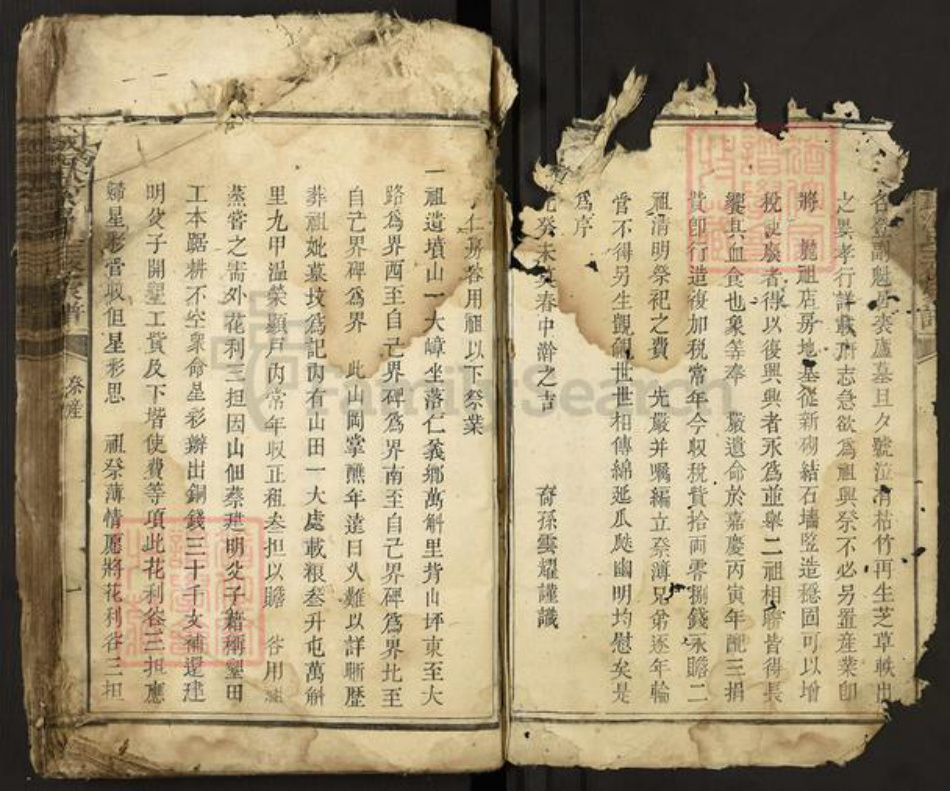 名登副魁居喪廬墓旦夕號泣清枯竹再生芝草軼出
之異孝行詳載府志急欲為祖興祭不必另置產業卽
將 魁祖店房地基從新砌結石墻豎造穩固可以增
稅說族者得以復興興者永為並舉二祖相聯皆得長
饗其血食也衆等奉 嚴遺命於嘉慶丙寅年配三捐
貲卽行造複加稅常年今収稅貲拾両零捌錢永贍二
祖清明祭祀之費 先嚴并嘱編立祭簿兄弟逐年輪
管不得另生覬覦世世相傳綿延瓜瓞幽明均慰矣是
為序
光癸未莫春中澣之吉 裔孫雲耀謹識
仁房容用祖以下祭業
一祖遺墳山一大嶂坐落仁義鄉萬斛里背山坪東至大
路為界西至自己界碑為界南至自己界碑為界北至
自己界碑為界 此山岡掌醮年遠日久難以詳晰歷
葬祖妣墓坟為記內有山田一大處載粮叁升屯萬斛
里九甲温榮顯戶內常年収正租叁担以贍 容用祖
蒸嘗之需外花利三担因山佃蔡建明父子藉稱墾田
工本踞耕不空衆命星彩辦出銅錢三十千文補還建
明父子開墾工貲及下堦使費等項此花利谷三担應
歸星彩管収但星彩思 祖祭薄情愿將花利谷三担
祭產
一
FamilySearch